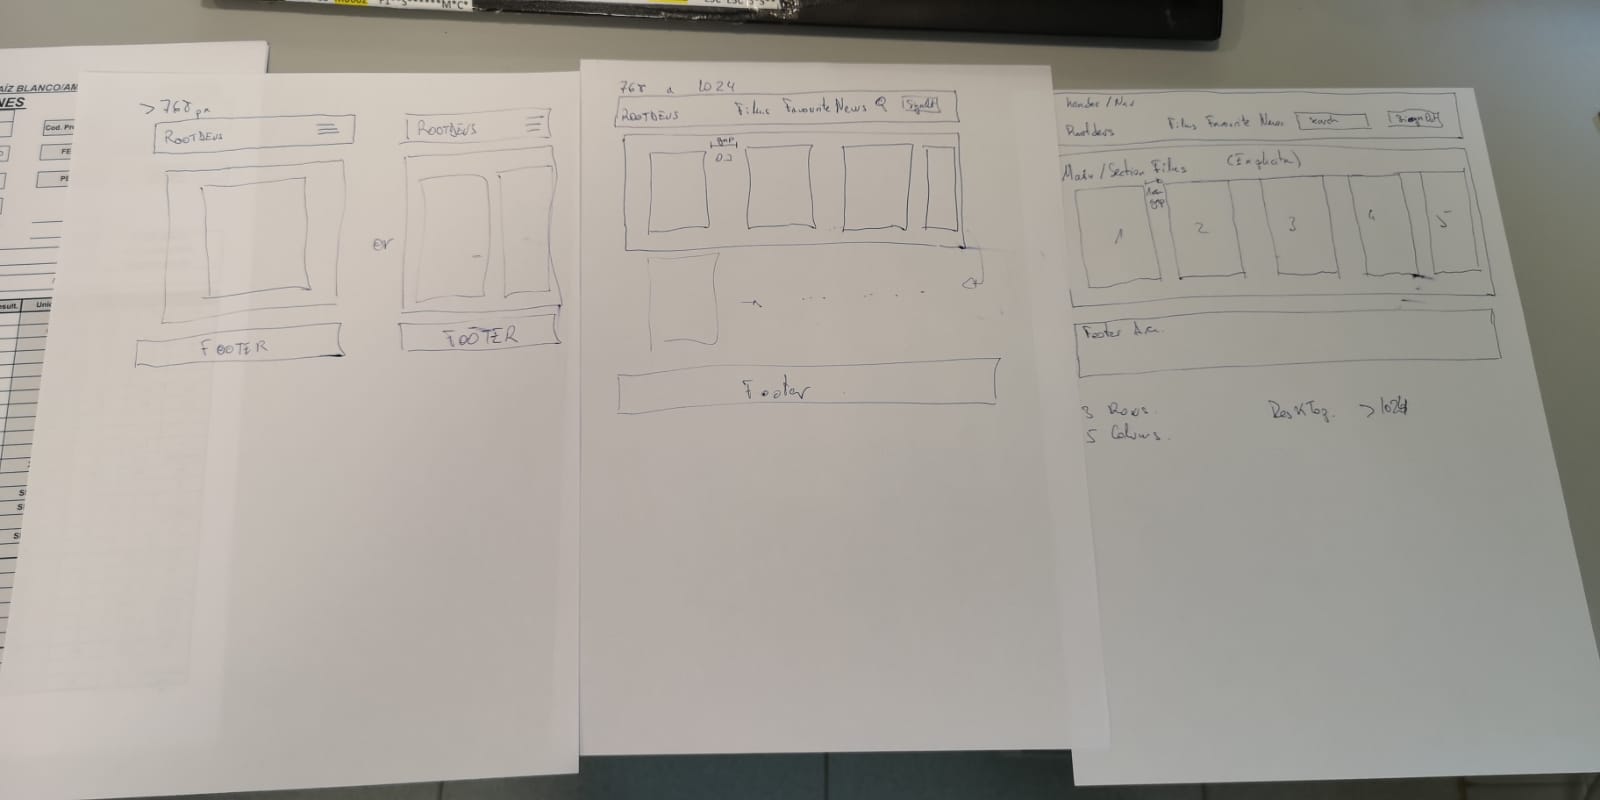 AÍZ BLANCO/AM
NES
Cod. Pr
FE
esult.
>768 px
ROOTDEVS
FOOTER
or
ROOTDEVS
FOOTER
768 a 1024
ROOTDEVS Films Favourite News
gap
Footer
header / Nav
Rootdevs Films Favourite News Search
Main / Section Films (Explicita)
gap
1 2 3 4 5
Footer
3 Rows.
5 Colums.
DeskTop. >1024